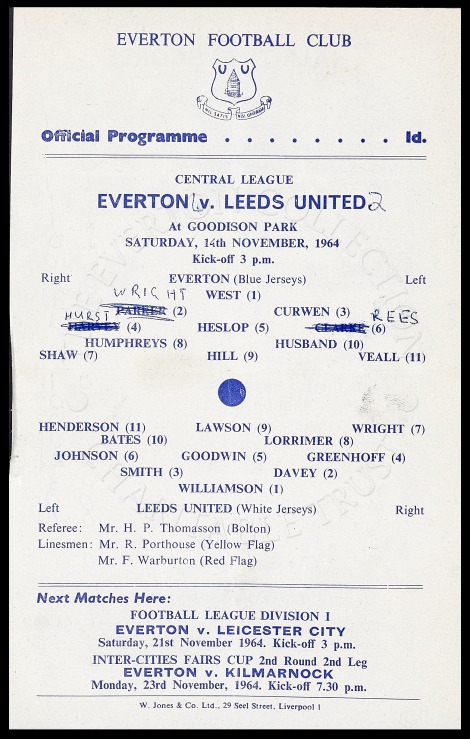 EVERTON FOOTBALL CLUB
NIL SATIS NISI OPTIMUM
Official Programme . . . . . . . . 1d.
CENTRAL LEAGUE
EVERTON v. LEEDS UNITED 2
At GOODISON PARK
SATURDAY, 14th NOVEMBER, 1964
Kick-off 3 p.m.
Right EVERTON (Blue Jerseys) Left
WRIGHT WEST (1)
PARKER (2) CURWEN (3) REES
HURST
HARVEY (4) HESLOP (5) CLARKE (6)
HUMPHREYS (8) HUSBAND (10)
SHAW (7) HILL (9) VEALL (11)
HENDERSON (11) LAWSON (9) WRIGHT (7)
BATES (10) LORRIMER (8)
JOHNSON (6) GOODWIN (5) GREENHOFF (4)
SMITH (3) DAVEY (2)
WILLIAMSON (1)
Left LEEDS UNITED (White Jerseys) Right
Referee: Mr. H. P. Thomasson (Bolton)
Linesmen: Mr. R. Porthouse (Yellow Flag)
Mr. F. Warburton (Red Flag)
Next Matches Here:
FOOTBALL LEAGUE DIVISION I
EVERTON v. LEICESTER CITY
Saturday, 21st November 1964. Kick-off 3 p.m.
INTER-CITIES FAIRS CUP 2nd Round 2nd Leg
EVERTON v. KILMARNOCK
Monday, 23rd November, 1964. Kick-off 7.30 p.m.
W. Jones & Co. Ltd., 29 Seel Street, Liverpool 1